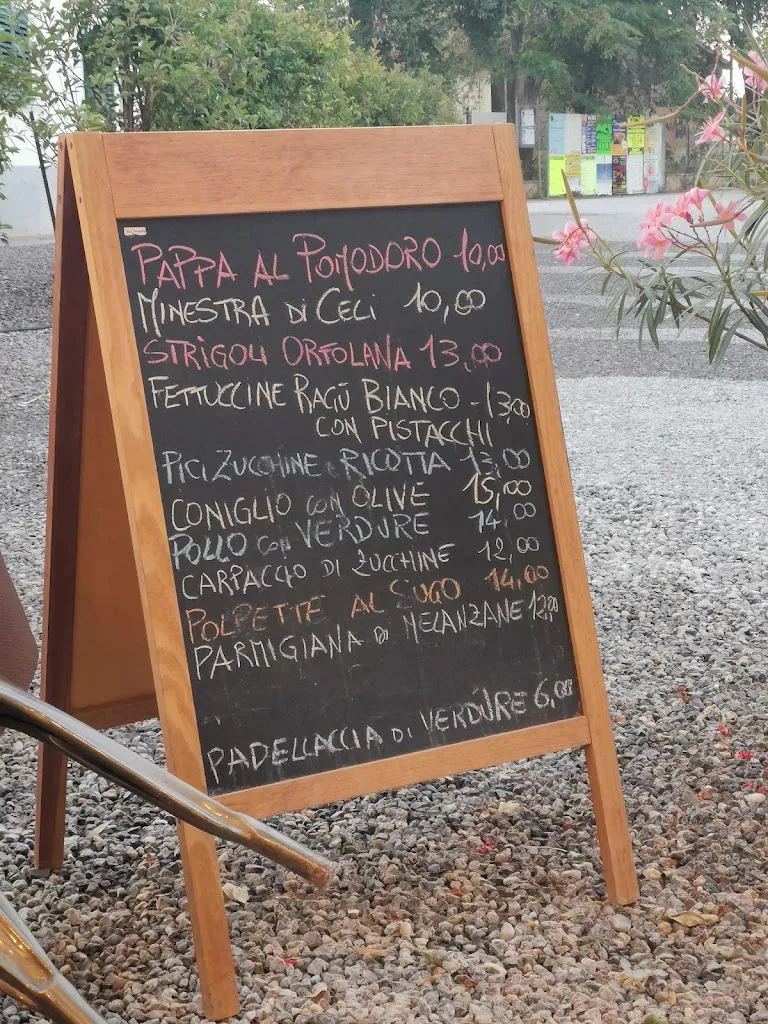 PAPPA AL POMODORO 10,00
MINESTRA DI CECI 10,00
STRIGOLI ORTOLANA 13,00
FETTUCCINE RAGÙ BIANCO - 13,00
CON PISTACCHI
PICI ZUCCHINE E RICOTTA 13,00
CONIGLIO CON OLIVE 15,00
POLLO CON VERDURE 14,00
CARPACCIO DI ZUCCHINE 12,00
POLPETTE AL SUGO 14,00
PARMIGIANA DI MELANZANE 12,00
PADELLACCIA DI VERDURE 6,00